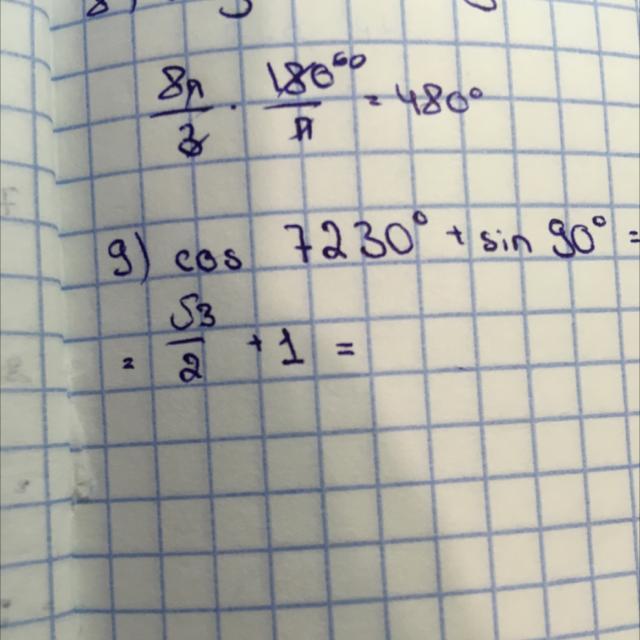 8π/3 · 180⁶⁰/π = 480°
9) cos 7230° + sin 90° =
= √3/2 + 1 =